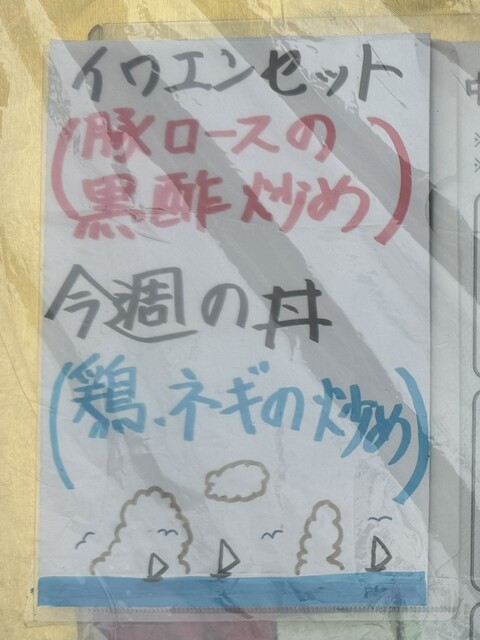 イワエンセット
(豚ロースの
黒酢炒め)
今週の丼
(鶏、ネギの炒め)